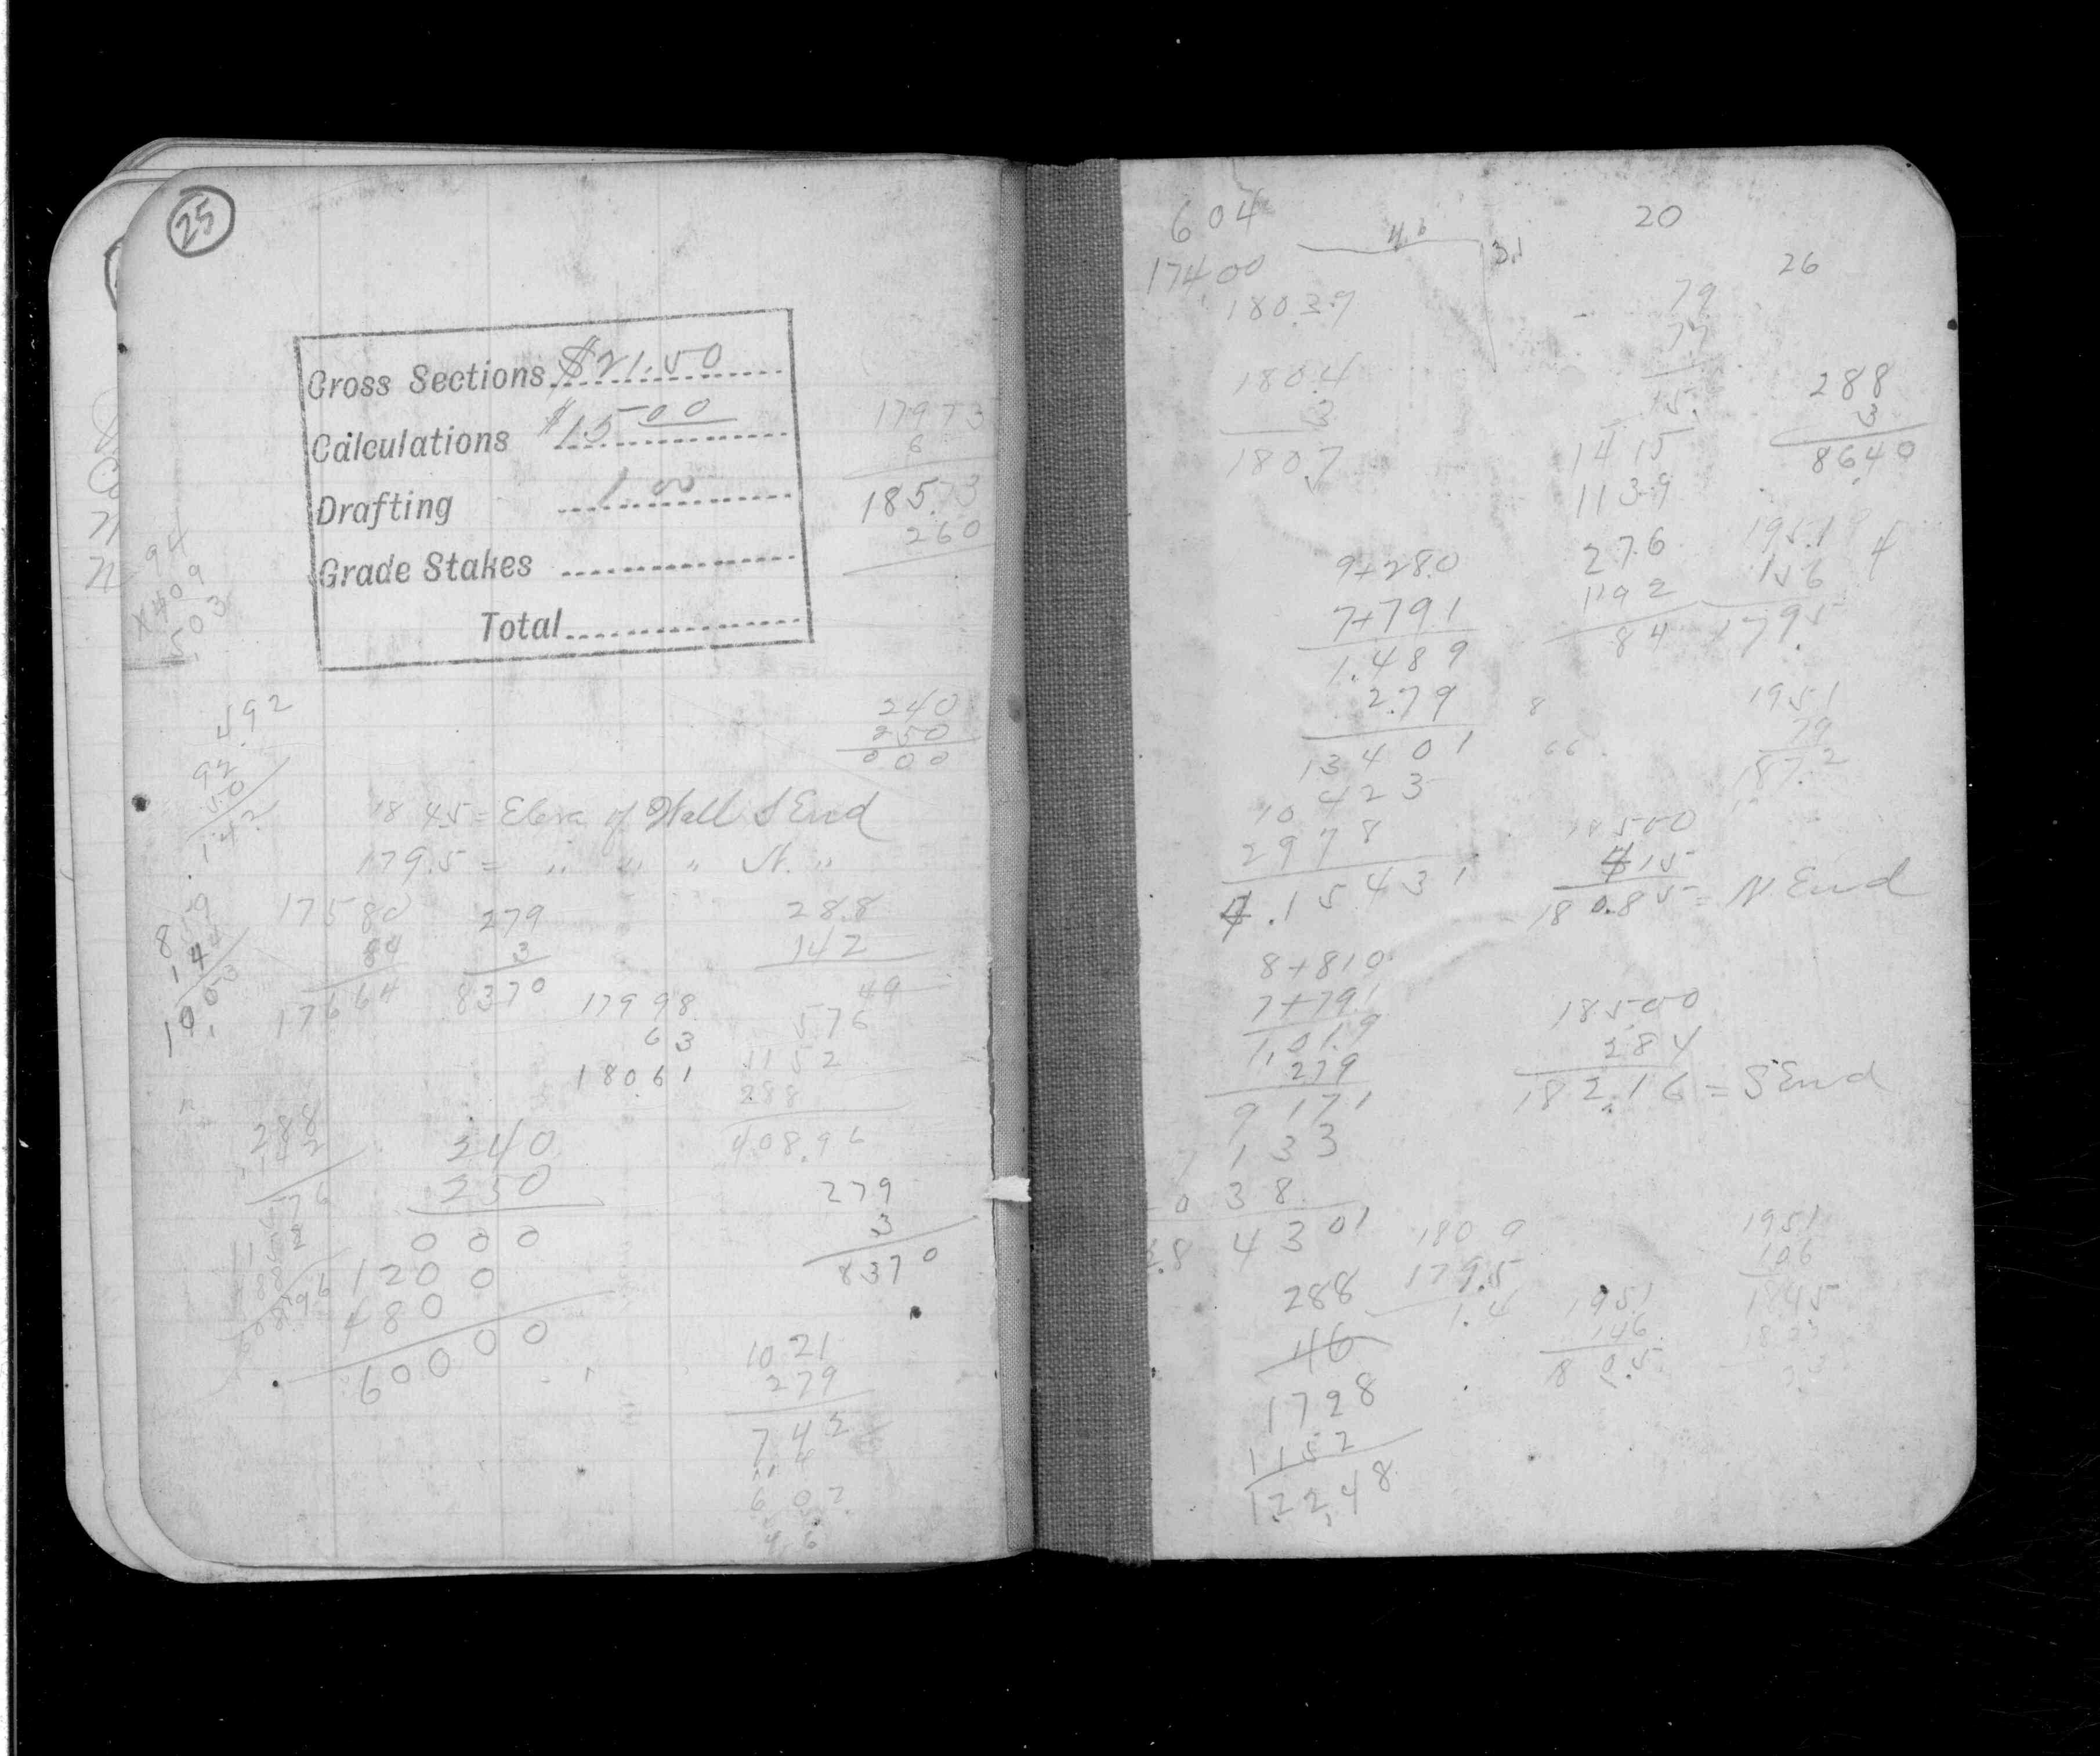 25
Cross Sections $21.50
Calculations $15 00
Drafting 1.00
Grade Stakes
Total
17973
6
185.73
260
94
409
503
592
92
50
142
240
250
000
184.5 = Elev. of Wall S End
179.5 = " " " N. "
17580
84
17664
279
3
8370
17998
63
18061
28.8
142
49
576
1152
288
408.96
859
144
1003
288
240
250
000
1200
480
60000
279
3
8370
1021
279
742
604
174.00
180.39
180.4
3
180.7
4.6
3.1
20
26
79
77
15
1415
1139
276
192
84
288
3
8640
195.1
156
179.5
4
9+280
7+791
1.489
2.79
13401
10423
2978
4.15431
8
66
1951
79
187.2
18500
415
180.85 = N. End
8+810
7+791
1,019
279
9171
7133
038
8 4301
18500
284
182.16 = S End
180 9
179.5
1.4
288
46
1728
1152
122,48
1951
146
180.5
1951
106
1845